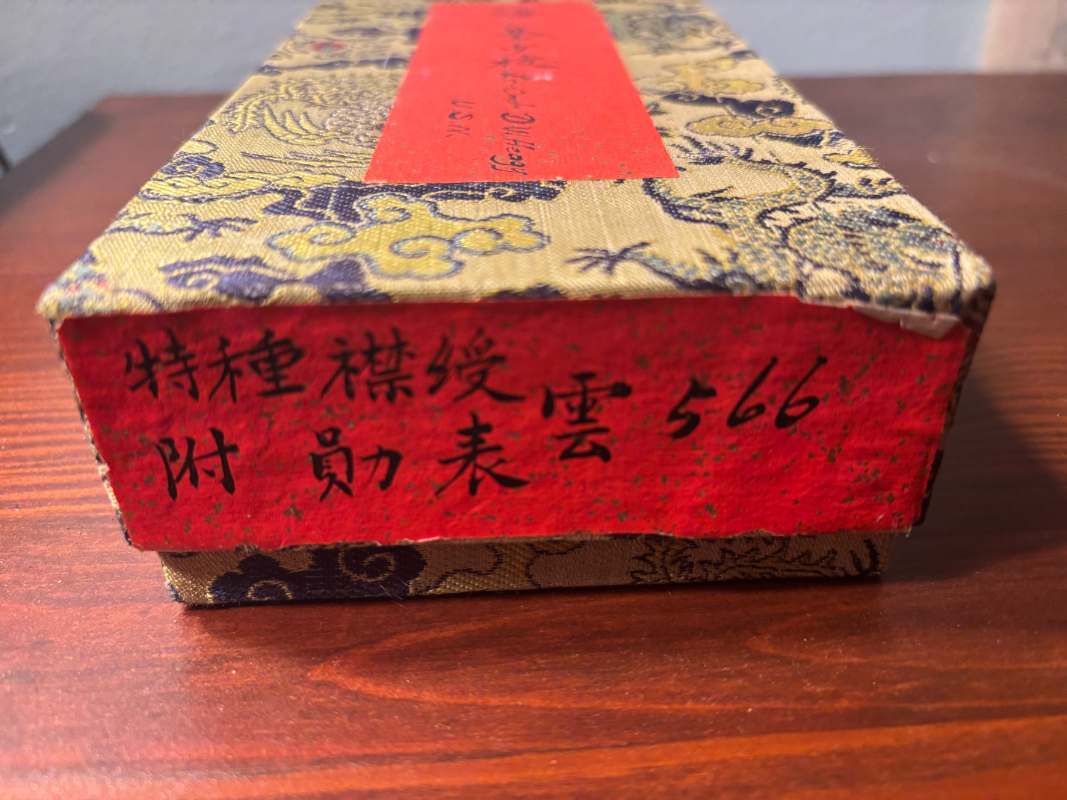 U.S.N.
特種襟綬
附 勛 表 雲 566